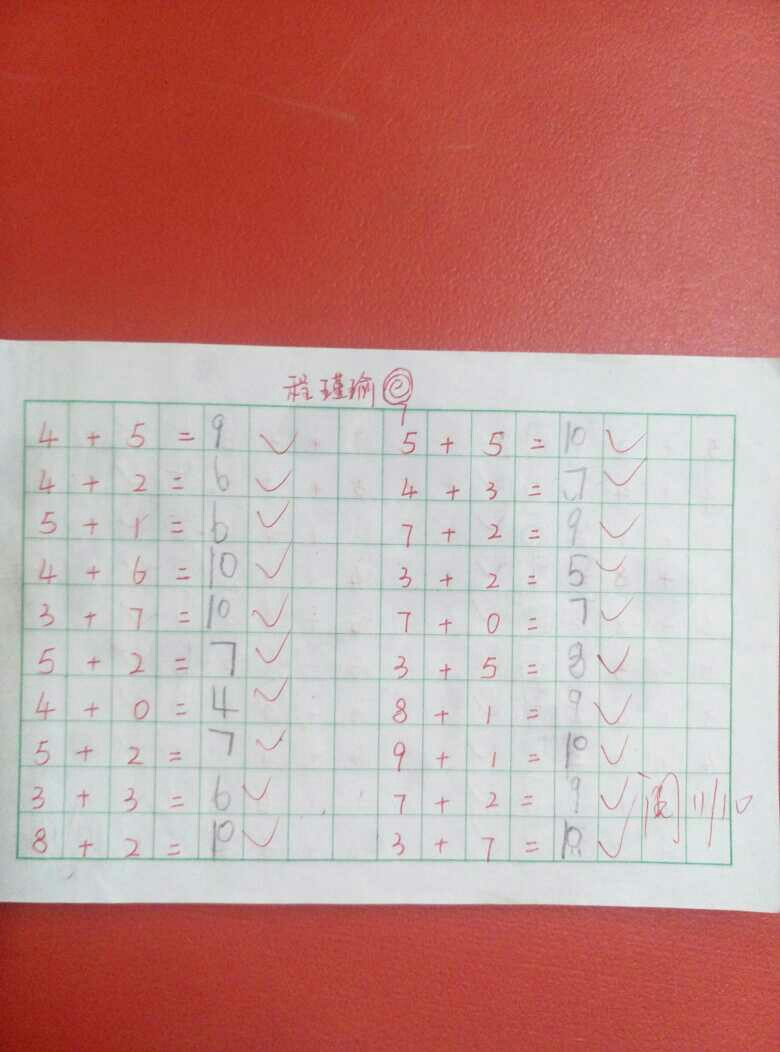 程瑾瑜
4 + 5 = 9 5 + 5 = 10
4 + 2 = 6 4 + 3 = 7
5 + 1 = 6 7 + 2 = 9
4 + 6 = 10 3 + 2 = 5
3 + 7 = 10 7 + 0 = 7
5 + 2 = 7 3 + 5 = 8
4 + 0 = 4 8 + 1 = 9
5 + 2 = 7 9 + 1 = 10
3 + 3 = 6 7 + 2 = 9 阅 11/10
8 + 2 = 10 3 + 7 = 10